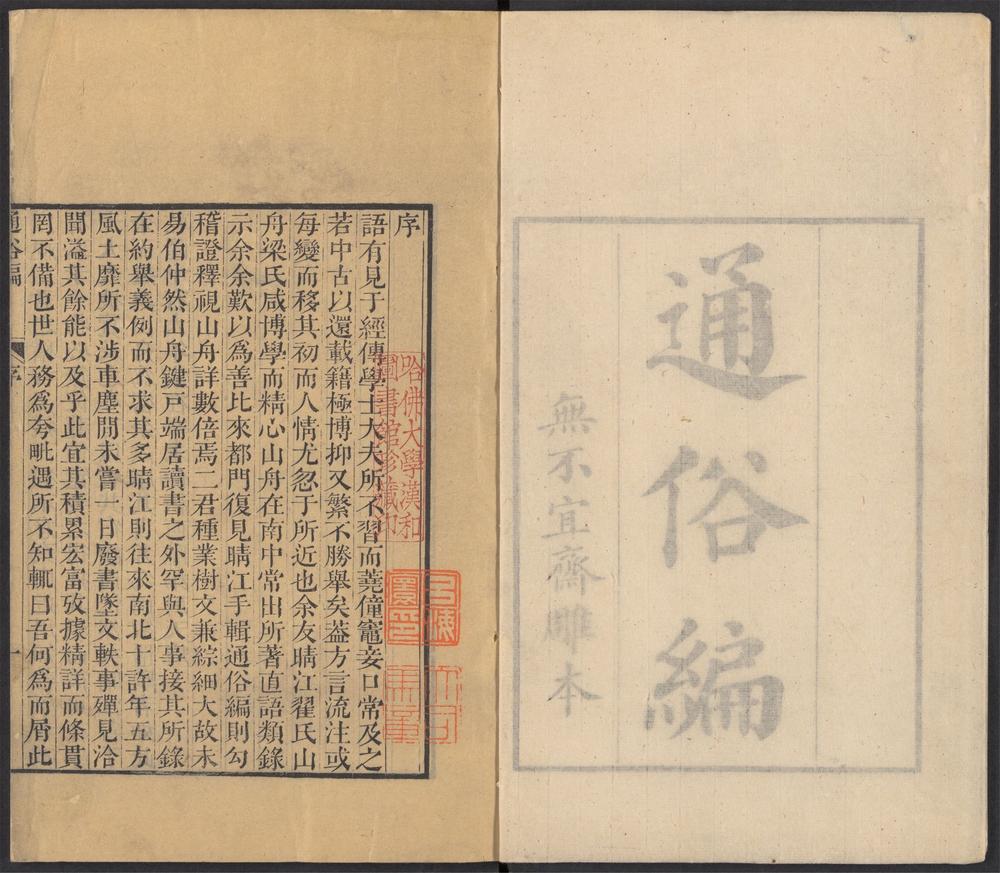 通俗編
無不宜齋雕本
序
語有見于經傳學士大夫所不習而蕘僮竈妾口常及之
若中古以還載籍極博抑又繁不勝舉矣葢方言流注或
每變而移其初而人情尤忽于所近也余友晴江翟氏山
舟梁氏咸博學而精心山舟在南中常出所著直語類錄
示余余歎以爲善比來都門復見晴江手輯通俗編則勾
稽證釋視山舟詳數倍焉二君種業樹文兼綜細大故未
易伯仲然山舟鍵戸端居讀書之外罕與人事接其所錄
在約舉義例而不求其多晴江則往來南北十許年五方
風土靡所不涉車塵閒未嘗一日廢書墜文軼事殫見洽
聞溢其餘能以及乎此宜其積累宏富攷據精詳而條貫
罔不備也世人務爲夸毗遇所不知輒曰吾何爲而屑此
通俗編
序
一
哈佛大學漢和
圖書館珍藏印